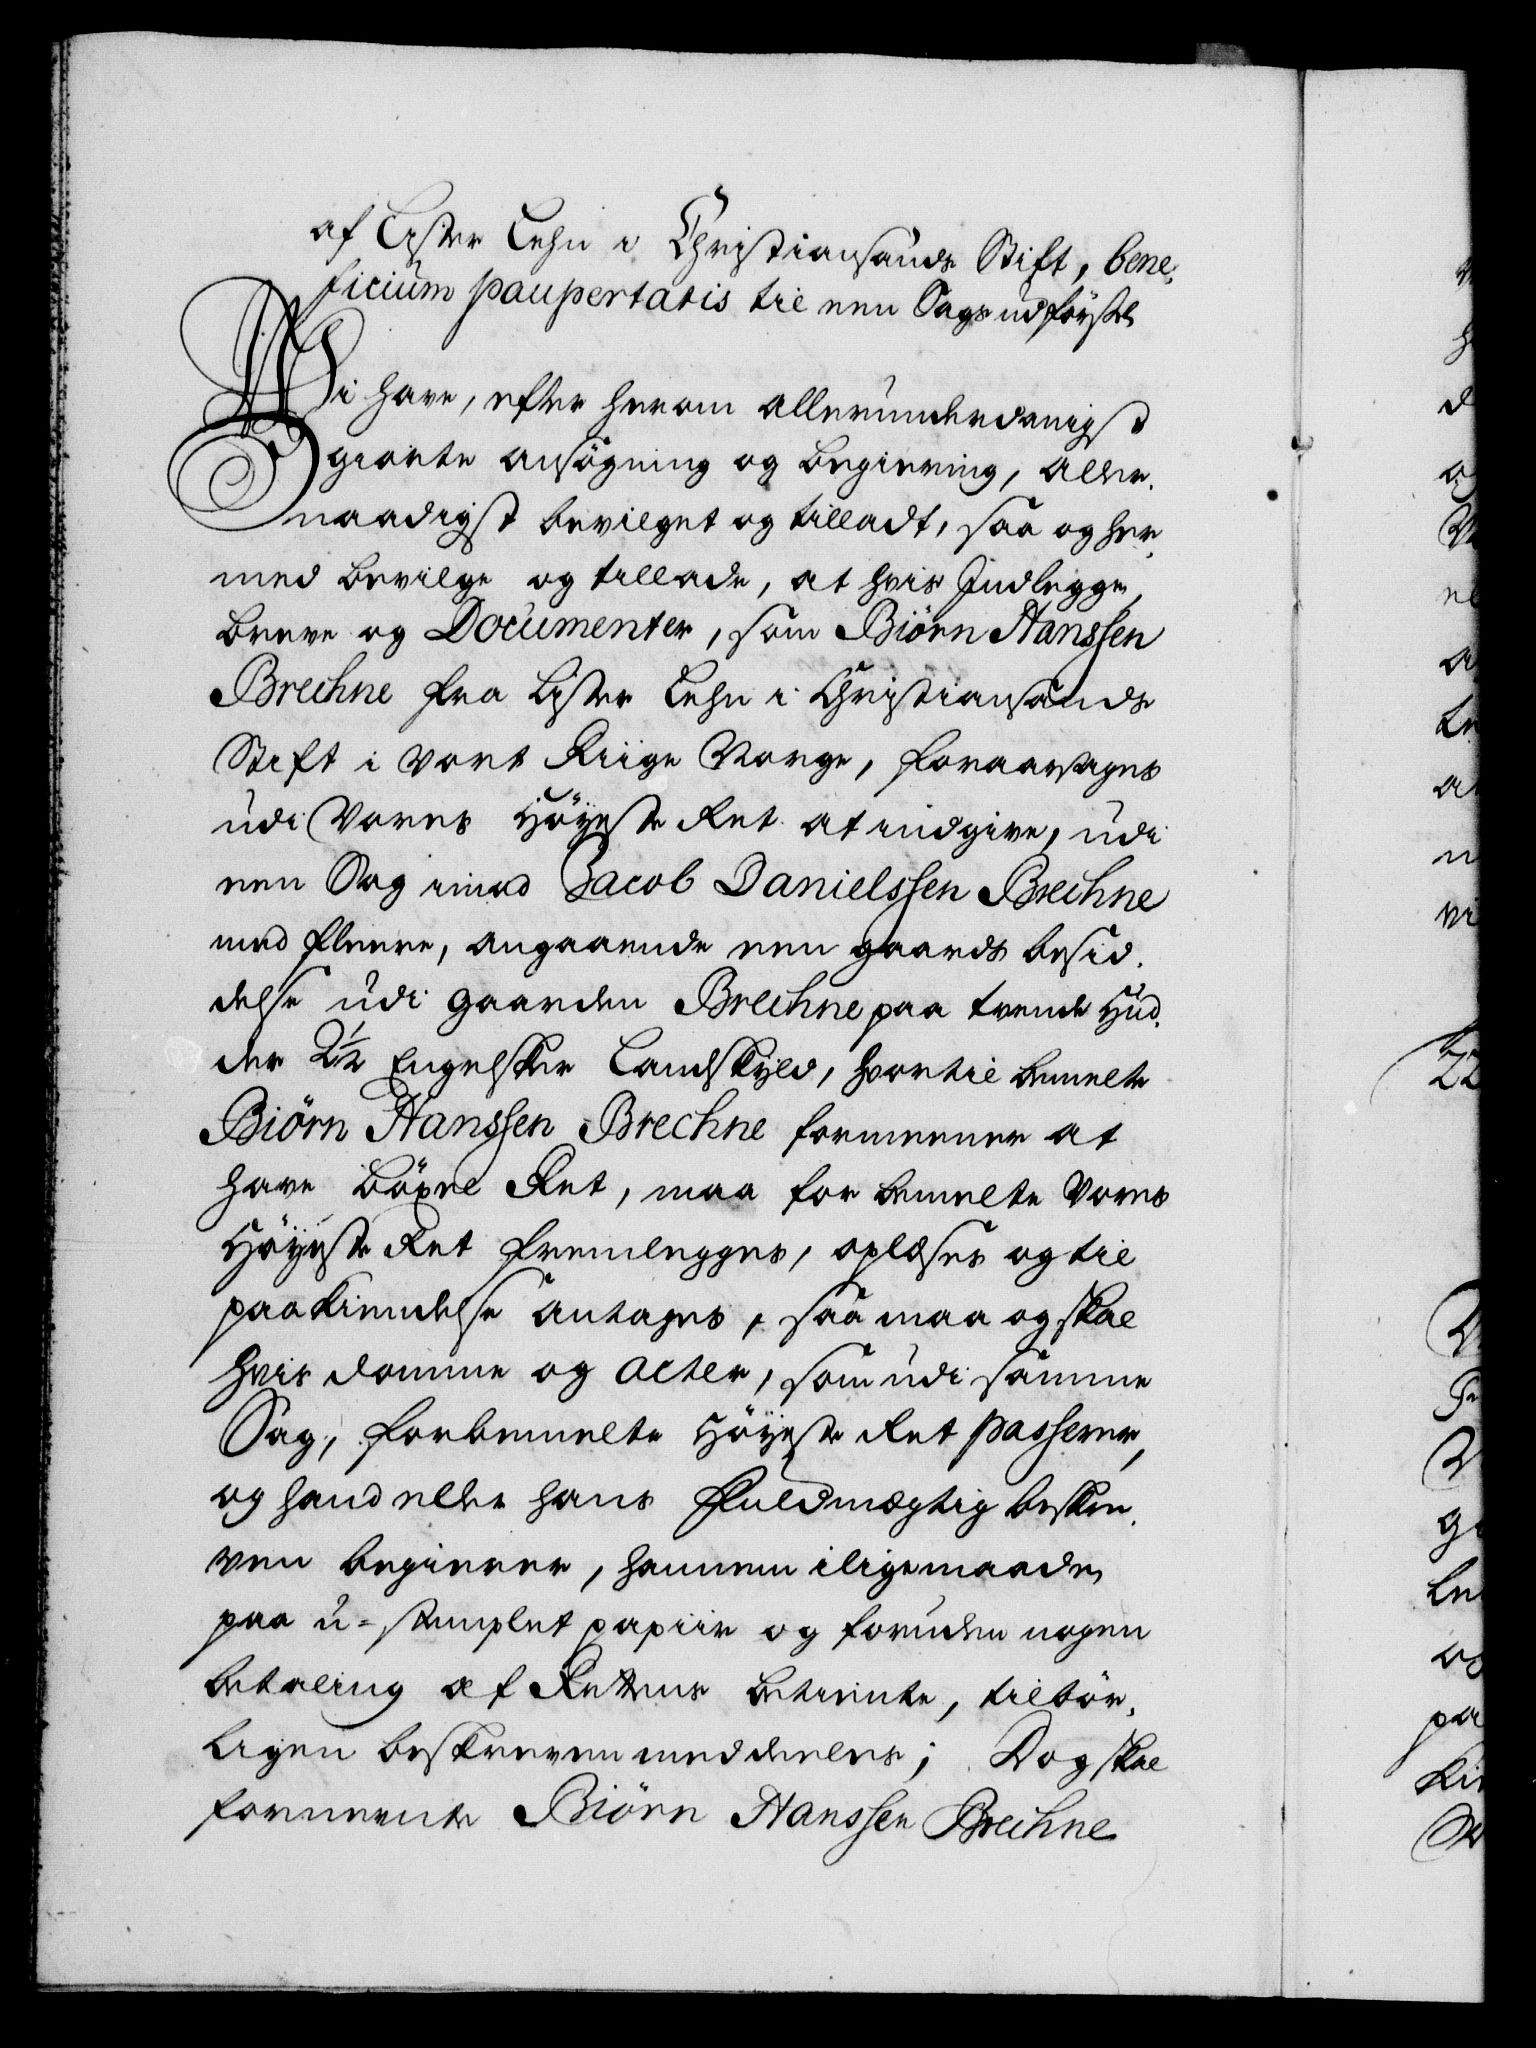 af Lister Lehn i Christiansands Stift, bene-
ficium paupertatis til een Sags udförsel.
Wi have, efter herom allerunderdanigst
giorte ansögning og begiering, aller-
naadigst bevilget og tilladt, saa og her-
med bevilge og tillade, at hvis Indlegge,
breve og Documenter, som Biörn Hanssen
Brechne fra Lister Lehn i Christiansands
Stift i vort Riige Norge, foraarsages
udi Vores Höyeste Ret at indgive, udi
een Sag imod Jacob Danielssen Brechne
med fleere, angaaende een gaards besid-
delse udi gaarden Brechne paa tvende Hud-
der 2½ Engelsker Landskyld, hvortil bemelte
Biörn Hanssen Brechne formeener at
have böxel Ret, maa for bemelte Vores
Höyeste Ret fremlegges, oplæses og til
paakiendelse antages, saa maa og skal
hvis domme og acter, som udi samme
Sag, forbemelte Höyeste Ret passerer,
og hand eller hans Fuldmægtig beskre-
ven begierer, hannem iligemaade
paa u-stemplet papiir og foruden nogen
betaling af Rettens betiente, tilbör-
ligen beskreven meddeeles; Dog skal
fornevnte Biörn Hanssen Brechne